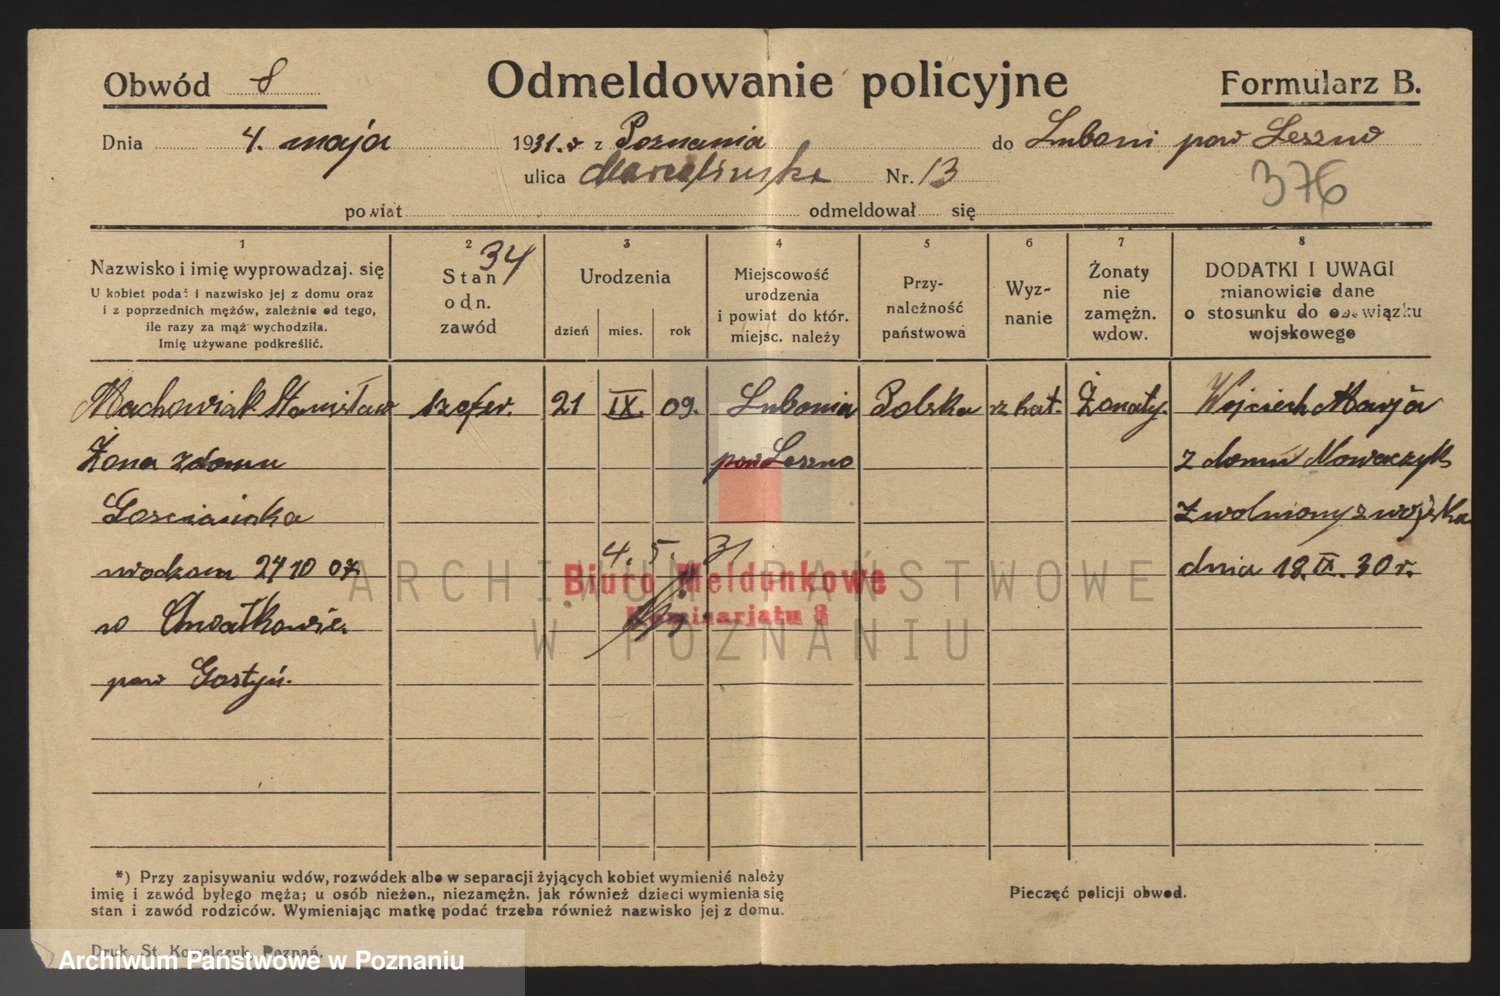 Obwód 8
Odmeldowanie policyjne
Formularz B.
Dnia 4. maja 1931.r z Poznania do Luboni pow Leszno
ulica Marcelińska Nr. 13
376
powiat odmeldował się
1 2 3 4 5 6 7 8
34
Nazwisko i imię wyprowadzaj. się
U kobiet podać i nazwisko jej z domu oraz
i z poprzednich mężów, zależnie od tego,
ile razy za mąż wychodziła.
Imię używane podkreślić.
Stan
odn.
zawód
Urodzenia
dzień mies. rok
Miejscowość
urodzenia
i powiat do któr.
miejsc. należy
Przy-
należność
państwowa
Wyz-
nanie
Żonaty
nie
zamężn.
wdow.
DODATKI I UWAGI
mianowicie dane
o stosunku do obowiązku
wojskowego
Machowiak Stanisław szofer. 21 IX. 09. Lubonia Polska rz kat. Żonaty. Wojciech Marja
Żona z domu pow Leszno z domu Nowaczyk
zwolniony z wojska
4. 5. 31
24 10 07. dnia 18. IX. 30 r.
Biuro Meldunkowe
Komisarjatu 8
w
pow Gostyń.
ARCHIWUM PAŃSTWOWE
W POZNANIU
*) Przy zapisywaniu wdów, rozwódek albo w separacji żyjących kobiet wymienić należy
imię i zawód byłego męża; u osób nieżon., niezamężn. jak również dzieci wymienia się
stan i zawód rodziców. Wymieniając matkę podać trzeba również nazwisko jej z domu.
Pieczęć policji obwod.
Druk. St. Kowalczyk, Poznań.
Archiwum Państwowe w Poznaniu